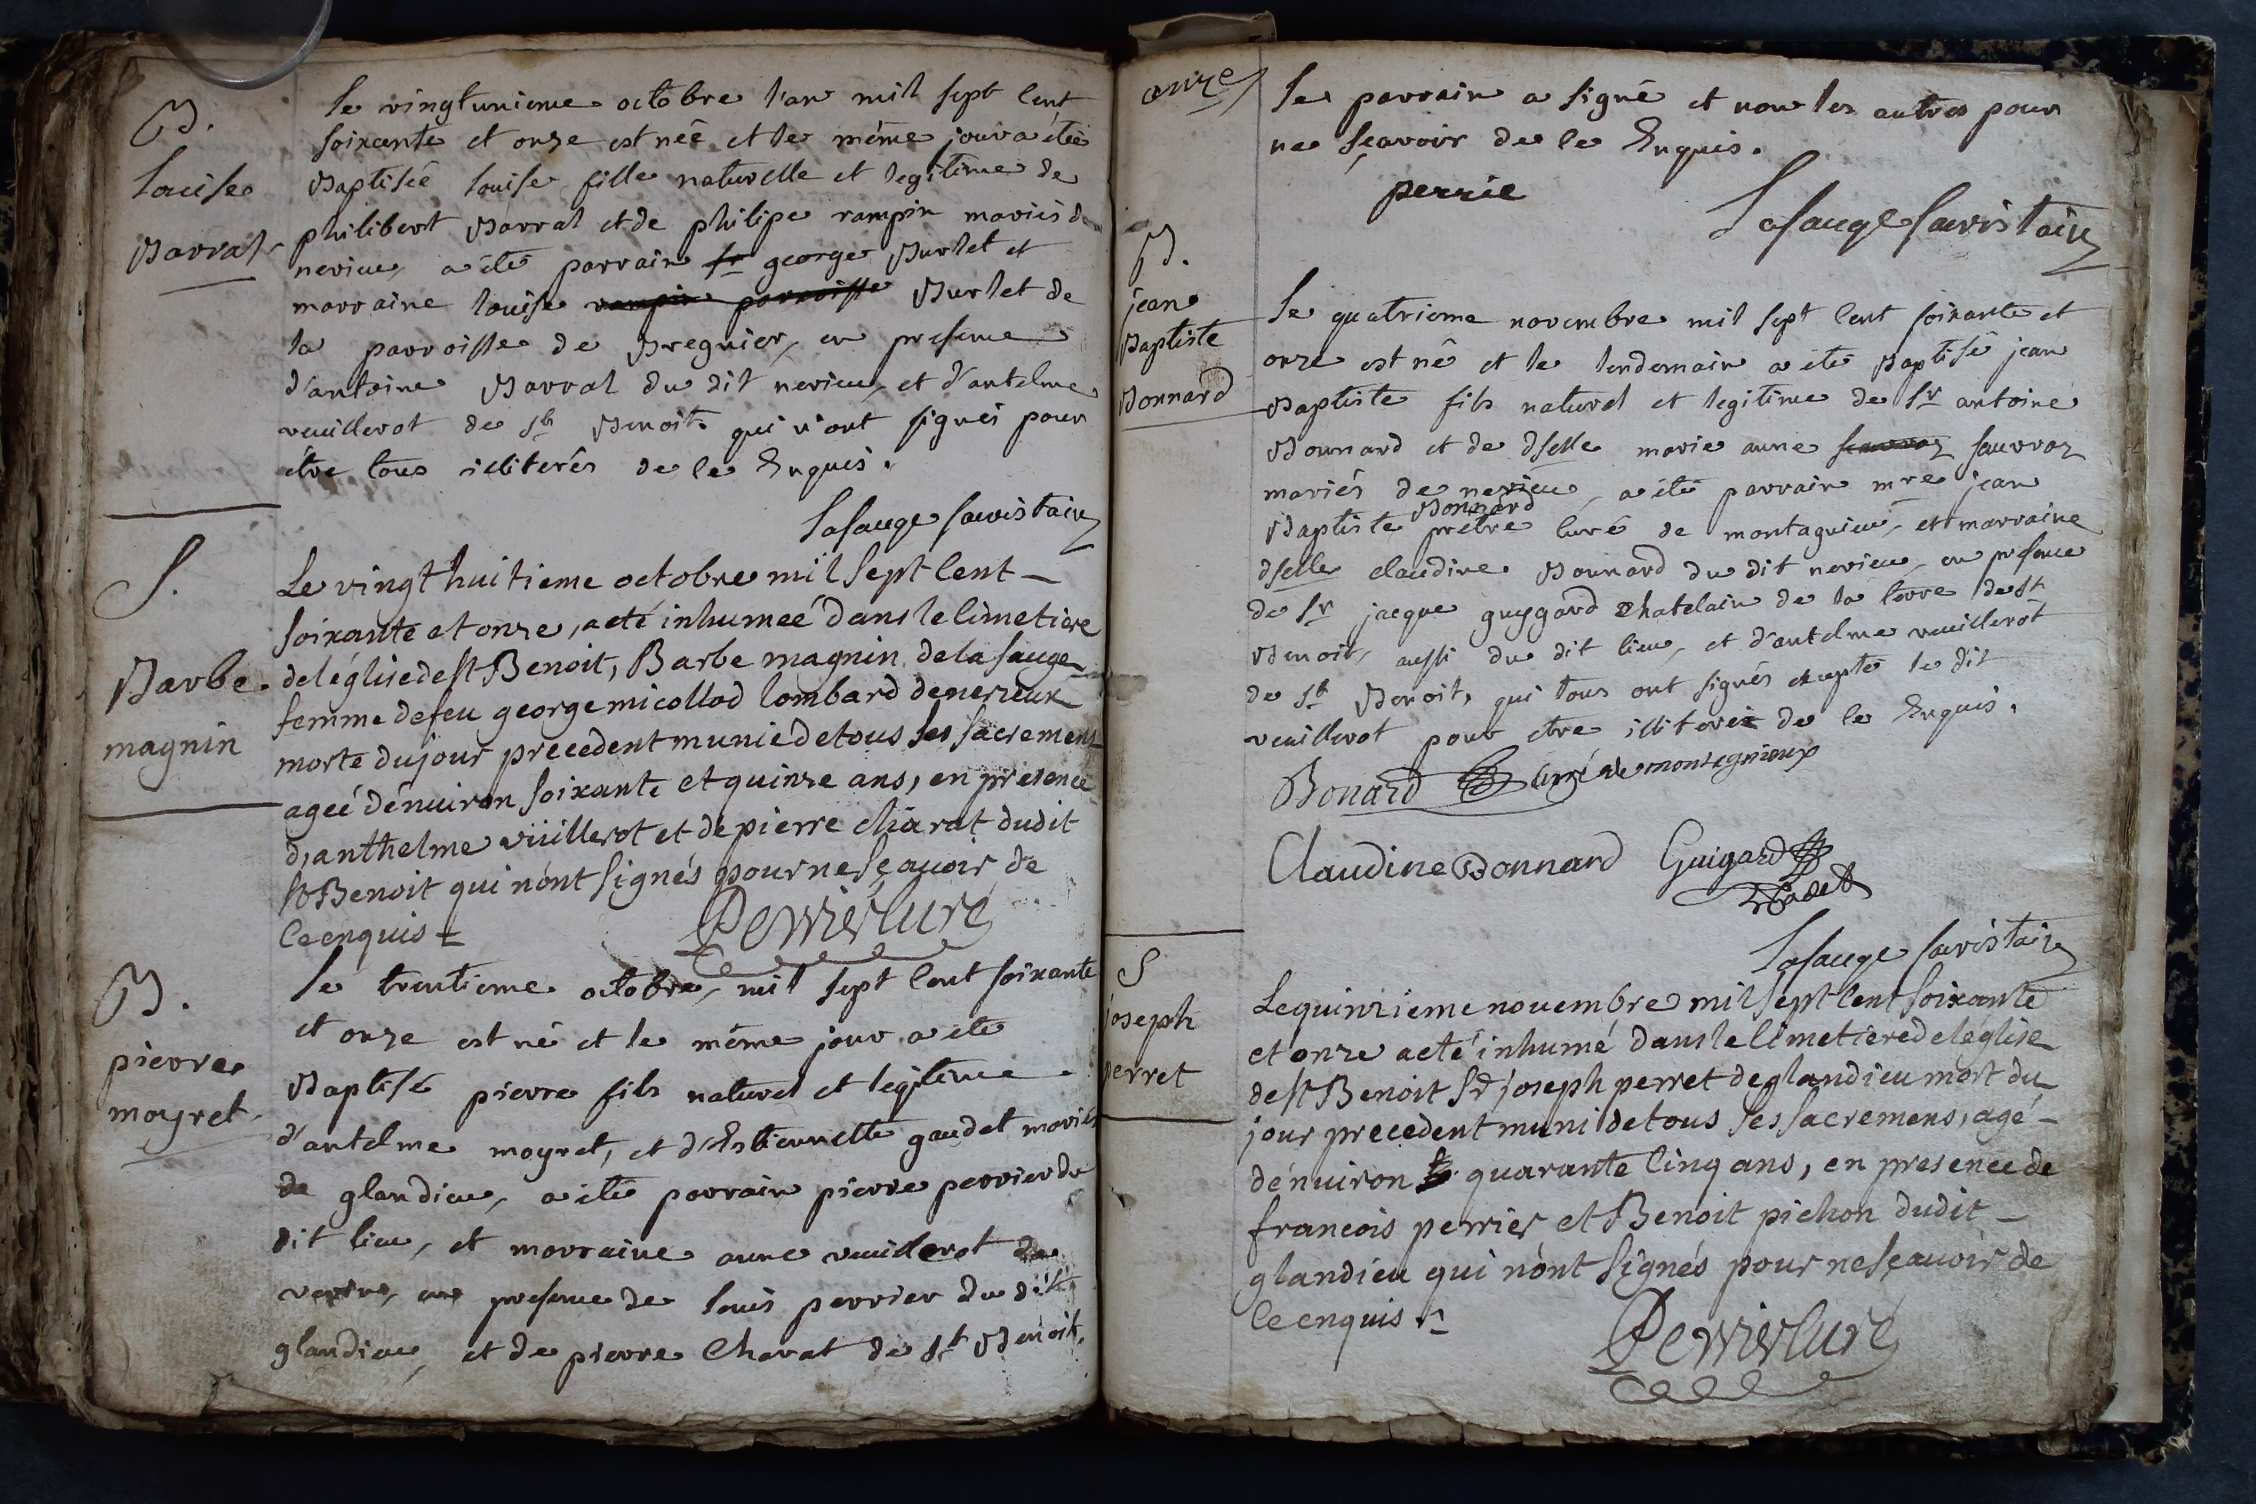 B.
Louise
Barral
Le vingtunieme octobre l'an mil sept cent
soixante et onze est née et le même jour a étée
Baptisée louise fille naturelle et legitime de
philibert Barral et de philipe rampin mariés de
nerieu, a été parrain sr george Burlet et
marraine louise rampin parroisse Burlet de
la parroisse de Bregnier, en presence
d'antoine Barral du dit nerieu, et d'antelme
veuillerot de st Benoit qui n'ont signés pour
être tous illiterés de ce Enquis.
Lasauge sacristain
S.
Barbe
magnin
Le vingt huitieme octobre mil sept cent
soixante et onze, a eté inhumeé dans le cimetiere
de l'église de st Benoit, Barbe magnin de la sauge
femme de feu george micollod lombard de nerieux
morte du jour precedent munie de tous ses sacremens
ageé d'énuiron soixante et quinze ans, en presence
d'anthelme vüillerot et de pierre charat dudit
st Benoit qui n'ont signés pour ne sçauoir de
ce enquis
Perrier curé
B.
pierre
moyret
Le trentieme octobre, mil sept cent soixante
et onze est né et le même jour a été
Baptisé pierre fils naturel et legitime
d'antelme moyret, et d'Estiennette gaudet mariés
de glandieu, a été parrain pierre perrier du
dit lieu, et marraine anne veuillerot de
en presence de louis perrier du dit
glandieu, et de pierre Charat de st Benoit.
onze
Le parrain a signé et non les autres pour
ne sçavoir de ce Enquis.
perrie
Lasauge sacristain
B.
jean
Baptiste
Bonnard
Le quatrieme novembre mil sept cent soixante et
onze est né et le lendemain a été Baptisé jean
Baptiste fils naturel et legitime de sr antoine
Bonnard et de dselle marie anne sauvraz sauvraz
mariés de nerieu, a été parrain mre jean
Baptiste Bonnard prêtre curé de montagnieu, et marraine
dselle claudine Bonnard du dit nerieu, en presence
de sr jacque guygard chatelain de la terre de st
Benoit, aussi du dit lieu, et d'antelme veuillerot
de st Benoit, qui tous ont signés excepté le dit
veuillerot pour être illiteré de ce Enquis.
Bonard curé de montegnieux
Claudine Bonnard Guigard
Cadet
Lasauge sacristain
S
joseph
perret
Le quinzieme nouembre mil sept cent soixante
et onze a eté inhumé dans le cimetiere de l'eglise
de st Benoit sr joseph perret de glandieu mort du
jour precedent muni de tous ses sacremens, agé
d'énuiron quarante cinq ans, en presence de
francois perrier et Benoit pichon dudit
glandieu qui n'ont signés pour ne sçauoir de
ce enquis
Perrier curé